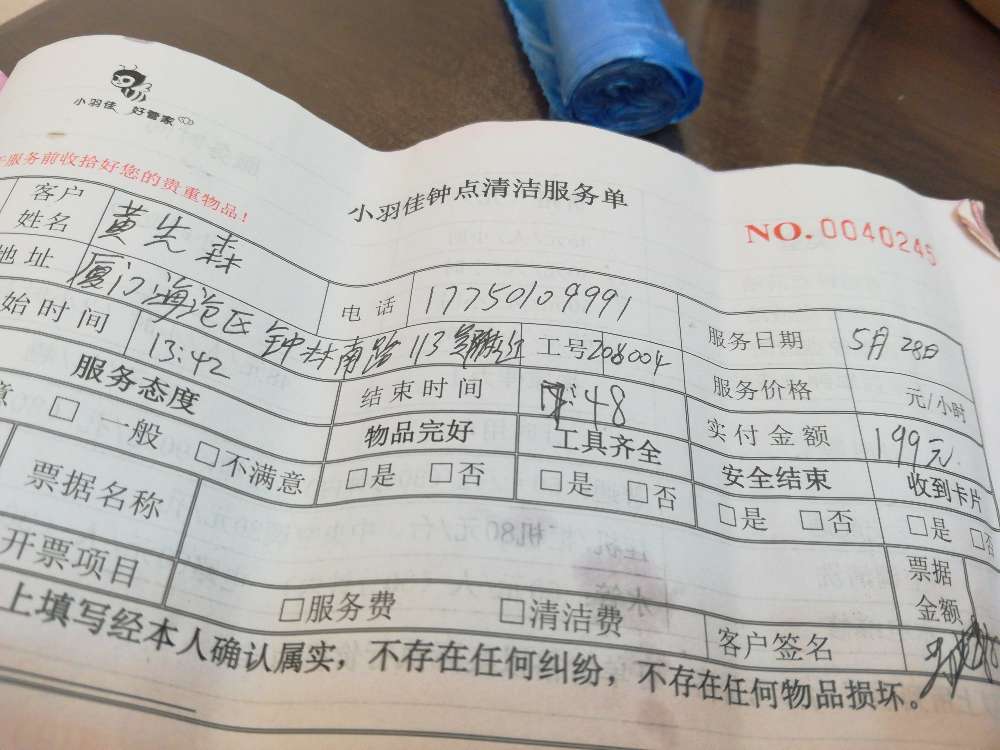 小羽佳 好管家
服务前收拾好您的贵重物品!
小羽佳钟点清洁服务单
NO. 0040245
客户姓名 黄先森 电话 17750109991 服务日期 5月28日
地址 厦门海沧区钟林南路113号 工号 208004 服务价格 元/小时
始时间 13:42 结束时间 17:48 实付金额 199元
服务态度 物品完好 工具齐全 安全结束 收到卡片
意 □一般 □不满意 □是 □否 □是 □否 □是 □否 □是 □否
票据名称 票据金额
开票项目 □服务费 □清洁费 客户签名
上填写经本人确认属实，不存在任何纠纷，不存在任何物品损坏。